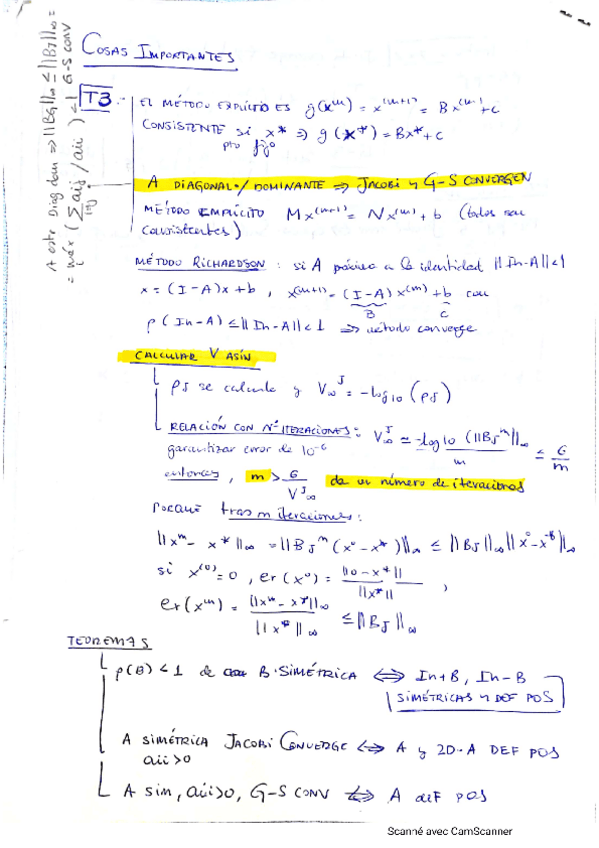 COSAS IMPORTANTES
A estr Diag dom ⇒ ||BG||∞ ≤ ||BJ||∞ =
= máx ( Σ aij / aii ) < 1 G-S CONV
i≠j
T3
EL MÉTODO EXPLÍCITO ES g(x^m) = x^(m+1) = Bx^(m) + c
CONSISTENTE si x* ⇒ g(x*) = Bx* + c
pto fijo
A DIAGONAL·/ DOMINANTE ⇒ JACOBI y G-S CONVERGEN
MÉTODO IMPLÍCITO Mx^(m+1) = Nx^(m) + b (todos son
consistentes)
MÉTODO RICHARDSON: si A próximo a la identidad ||In-A||<1
x = (I-A)x + b, x^(m+1) = (I-A)x^(m) + b con
B C
ρ(In-A) ≤ ||In-A|| < 1 ⇒ método converge
CALCULAR V ASIN
ρJ se calcula y V∞^J = -log10 (ρJ)
RELACIÓN CON Nº ITERACIONES: V∞^J ≃ -log10 (||BJ^m||∞ / m ≤ 6/m
garantizar error de 10^-6
entonces, m > 6 / V^J∞ da un número de iteraciones
PORQUE tras m iteraciones:
||x^m - x*||∞ = ||BJ^m (x^0 - x*)||∞ ≤ ||BJ||∞ ||x^0 - x*||∞
si x^(0) = 0, er(x^0) = ||0 - x*|| / ||x*|| ,
er(x^m) = ||x^m - x*||∞ / ||x*||∞ ≤ ||BJ||∞
TEOREMAS
ρ(B) < 1 de B SIMÉTRICA ⇔ In+B, In-B
SIMÉTRICAS y DEF POS
A SIMÉTRICA JACOBI CONVERGE ⇔ A y 2D-A DEF POS
aii>0
A sim, aii>0, G-S CONV ⇔ A DEF POS
Scanné avec CamScanner